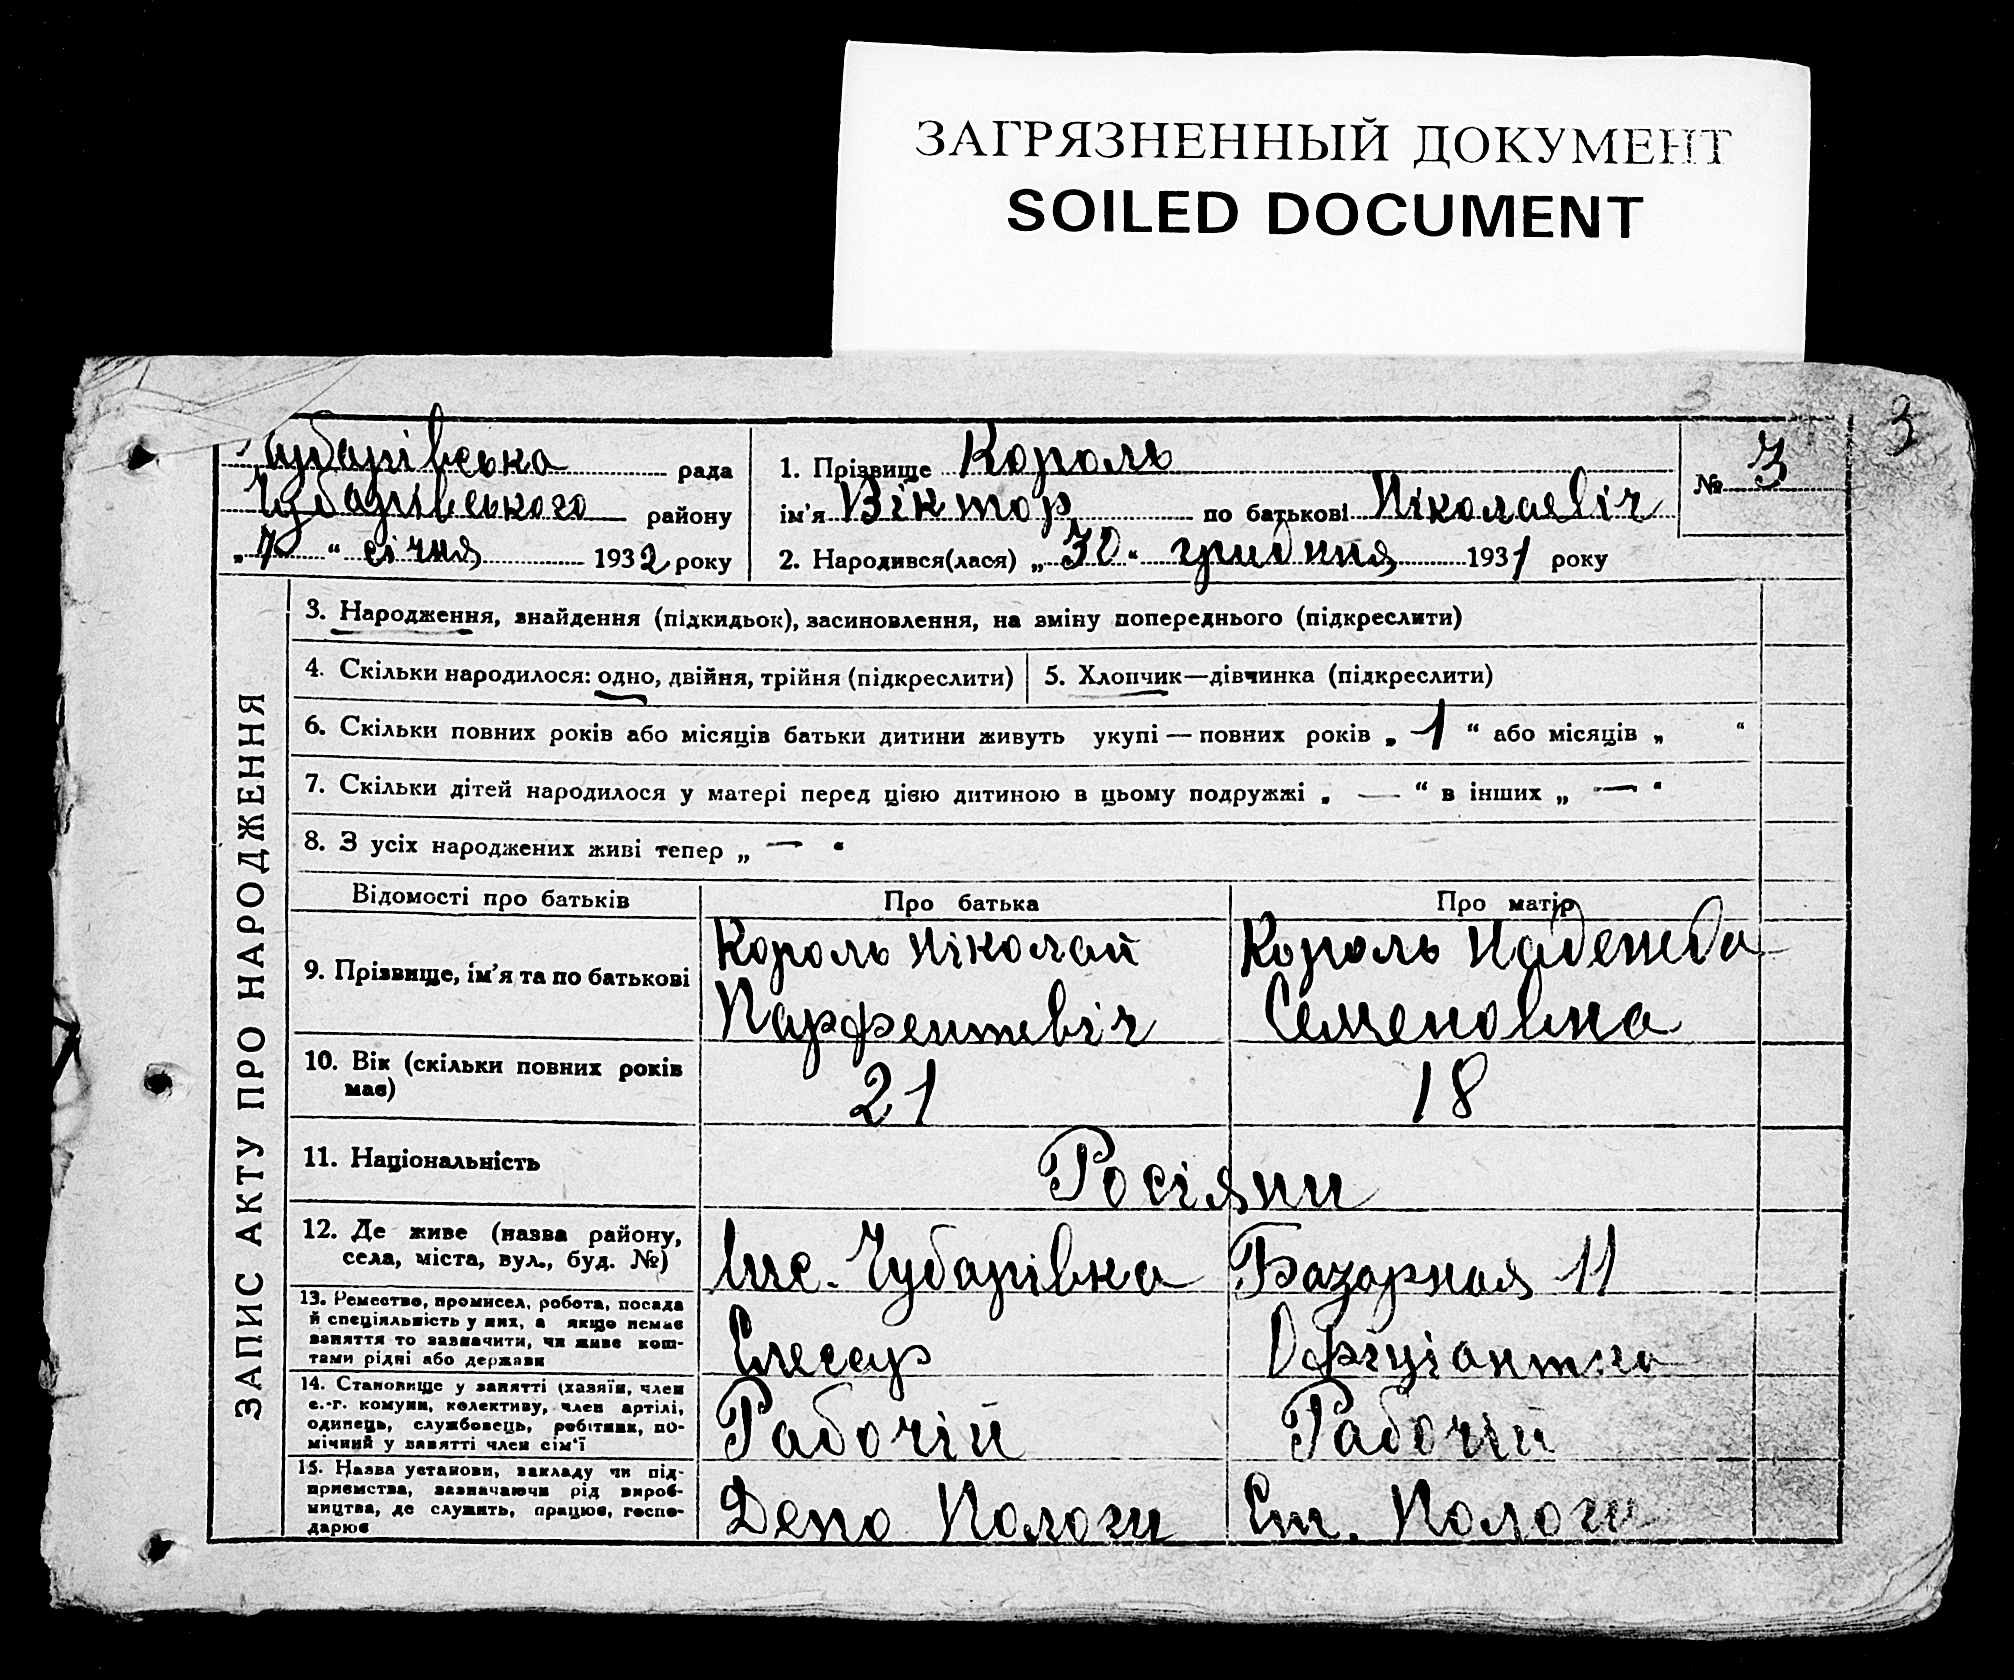 ЗАГРЯЗНЕННЫЙ ДОКУМЕНТ
SOILED DOCUMENT
3
Чубарівська рада
Чубарівського району
„ 7 “ січня 1932 року
1. Прізвище Король
ім'я Віктор по батькові Ніколаєвіч
2. Народився(лася) „ 30 “ грудння 1931 року
№ 3
ЗАПИС АКТУ ПРО НАРОДЖЕННЯ
3. Народження, знайдення (підкидьок), засиновлення, на зміну попереднього (підкреслити)
4. Скільки народилося: одно, двійня, трійня (підкреслити)
5. Хлопчик—дівчинка (підкреслити)
6. Скільки повних років або місяців батьки дитини живуть укупі — повних років „ 1 “ або місяців „ “
7. Скільки дітей народилося у матері перед цією дитиною в цьому подружжі „ — “ в інших „ — “
8. З усіх народжених живі тепер „ — “
Відомості про батьків
Про батька
Про матір
9. Прізвище, ім'я та по батькові
Король Ніколай
Парфентвіч
Король Надежда
Семеновна
10. Вік (скільки повних років
має)
21
18
11. Національність
Росіяни
12. Де живе (назва району,
села, міста, вул., буд. №)
Чубарівка Базарная 11
13. Ремество, промисел, робота, посада
й спеціяльність у них, а якщо немає
заняття то зазначити, чи живе кош-
тами рідні або держави
Слесар
Офіціантка
14. Становище у занятті (хазяїн, член
с.-г. комуни, колективу, член артілі,
одинець, службовець, робітник, по-
мічний у занятті член сім'ї
Рабочій
Рабочій
15. Назва установи, закладу чи під-
приємства, зазначаючи рід вироб-
ництва, де служить, працює, госпо-
дарює
Депо Пологи
Ст. Пологи